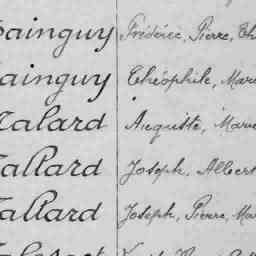 ainguy Frédéric, Pierre, Ch
ainguy Théophile, Mar
alard Auguste, Mar
allard Joseph, Albert
allard Joseph, Pierre, Ma